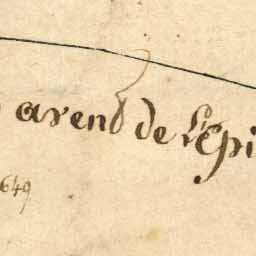 arend de L'Epi
649